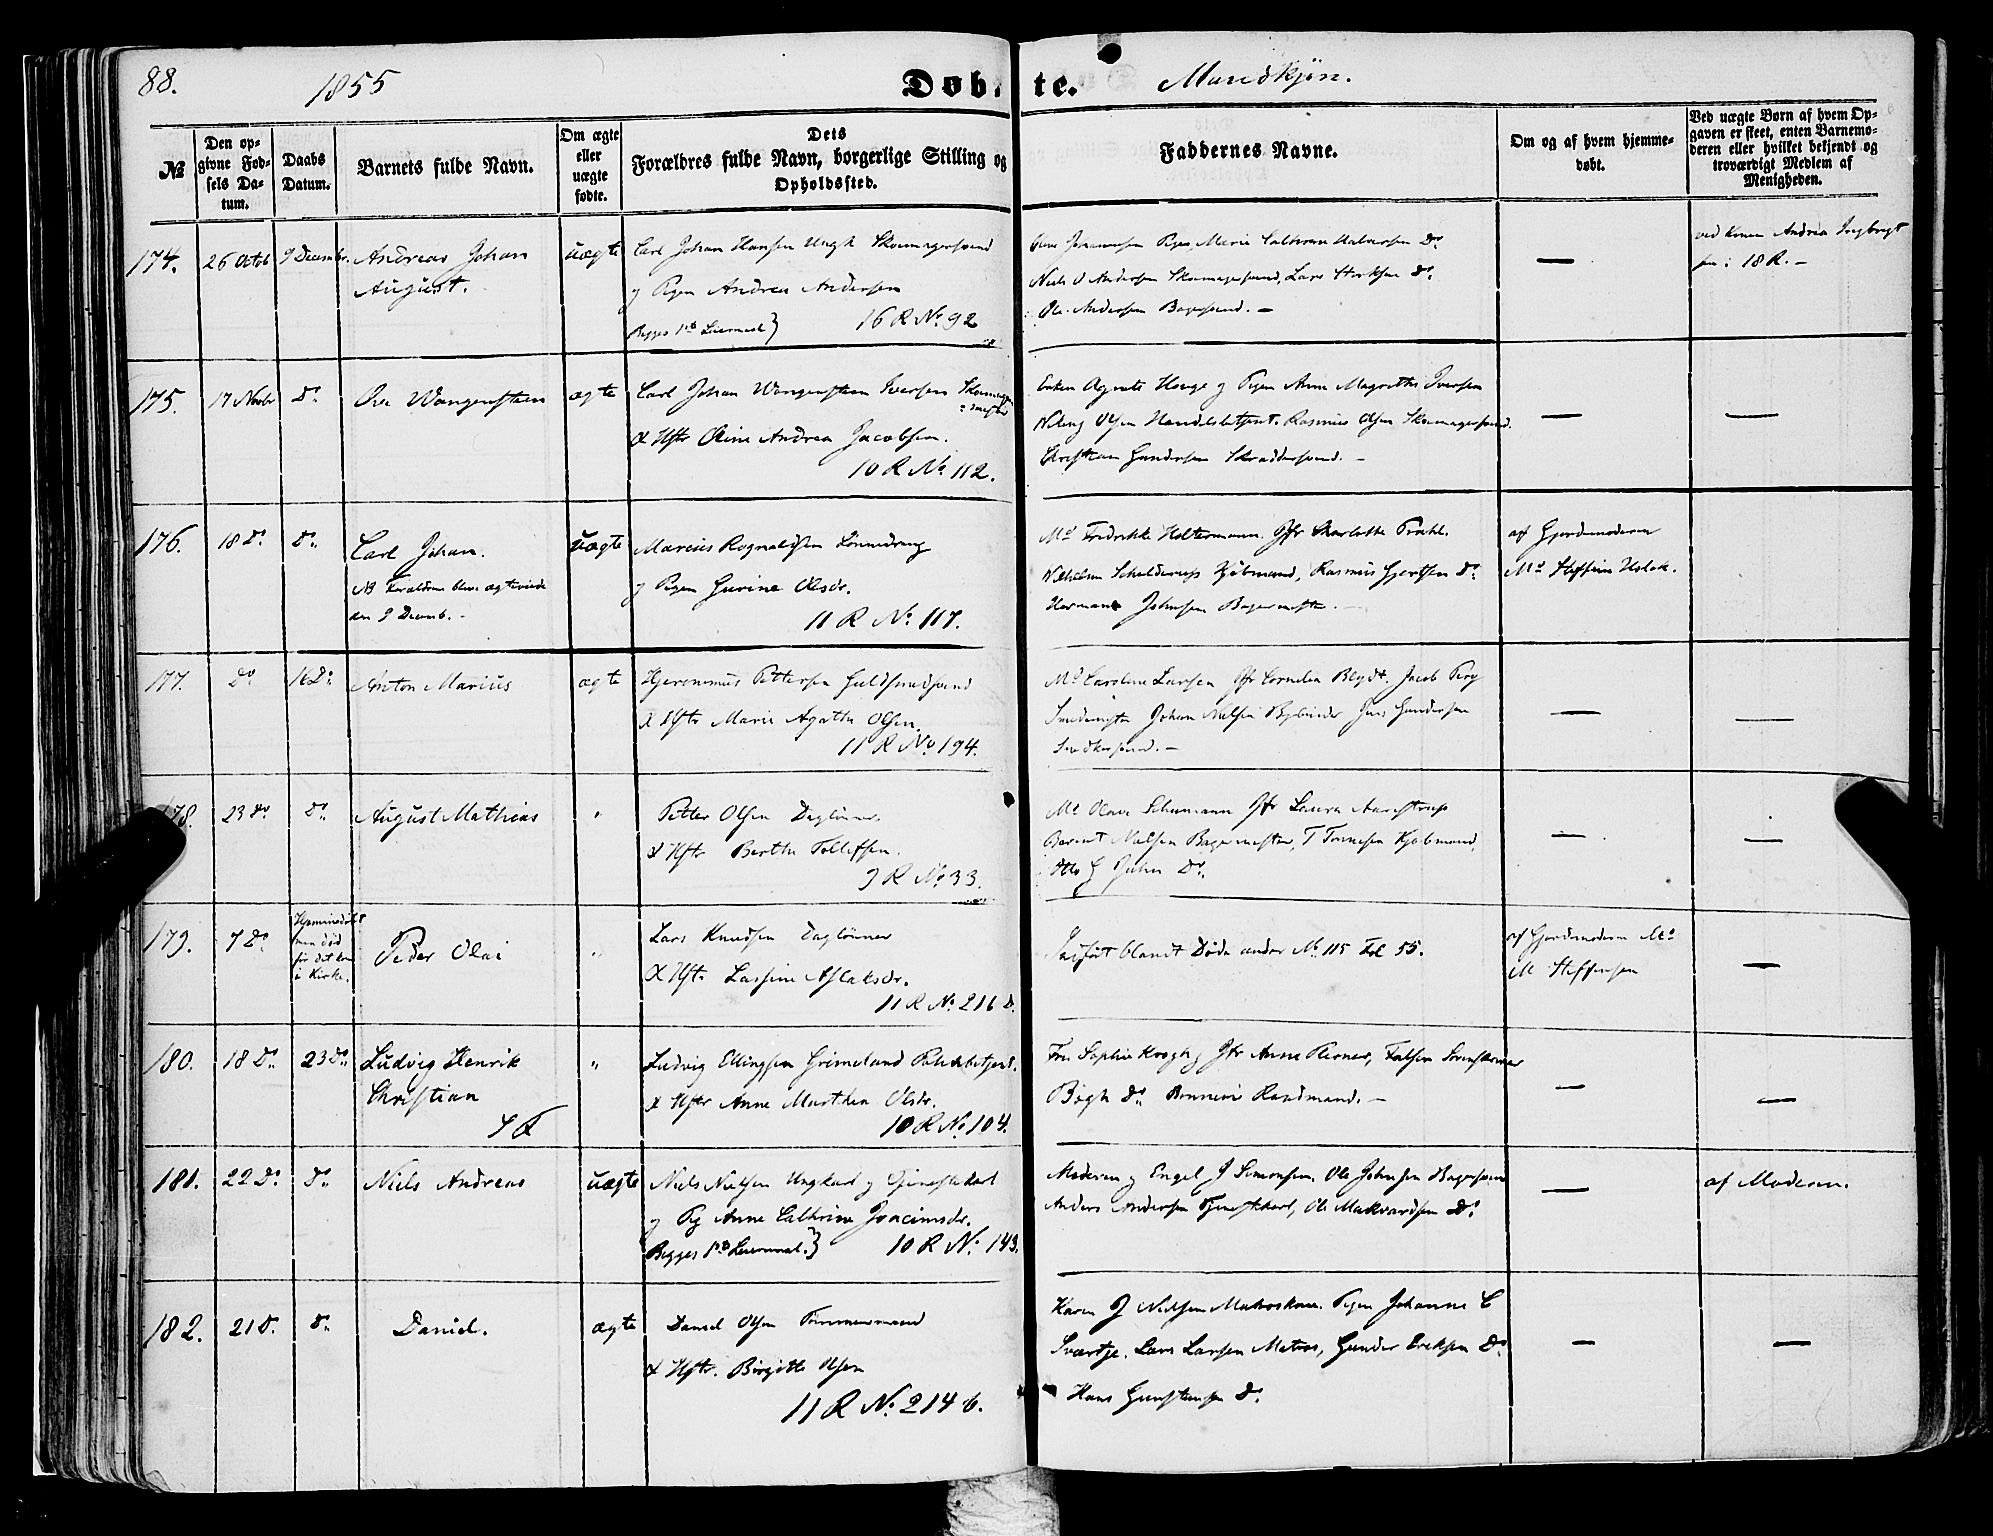 88. 1855 Døbte. Mandkjøn.
№
Den opgivne Fødsels Datum.
Daabs Datum.
Barnets fulde Navn.
Om ægte eller uægte fødte.
Dets Forældres fulde Navn, borgerlige Stilling og Opholdssted.
Faddernes Navne.
Om og af hvem hjemmedøbt.
Ved uægte Børn af hvem Opgaven er skeet, enten Barnemoderen eller hvilket bekjendt og troværdigt Medlem af Menigheden.
174. 26 Octob 9 Decembr. Andreas Johan uægte Carl Johan Hansen Ungk Skomagersvend
August. og Pigen Andrea Andersen
Begges 1ste Leiermaal} 16 R No. 92
Niels O Andersen Skomagersvend, Lars Do.
Ole Andersen Bagersvend. —
—
ved Konen Andrea
i 18 R. —
175. 17 Novbr Do. Wangensteen ægte Carl Johan Wangensteen Iversen Skomagermester
& Hstr Oline Andrea Jacobsen.
10 R No. 112.
Enken Agnete Houge og Pigen Anne Magrethe Iversen
Olsen Handelsbetjent. Rasmus Olsen Skomagersvend.
Christian Gundersen Skræddersvend. —
— —
176. 18 Do. Do. Carl Johan. uægte Marcius Rognaldsen
NB Forældrene bleve ægteviede og Pigen Gurine Olsdr.
den 9 Decemb. — 11 R No. 117.
Md Fredrikke Holtermann. Jfr Charlotte Prahl.
Wilhelm Schelderup Kjøbmand, Rasmus Gjertsen Do.
Herman Johnsen Bagermester. —
af Gjordemoderen
Md.
177. Do. 16 Do. Anton Marius ægte Hjeronimus Pettersen Guldsmedsvend
& Hstr Marie Agathe Olsen.
11 R No 194.
Md Caroline Larsen Jfr Cornelia Blydt. Jacob
Johan Nielsen Jens Gundersen
— —
178. 23 Do. Do. August Mathias " Petter Olsen Daglønner.
& Hstr Berthe Tollefsen.
9 R No. 33.
Md Olave Schumann Jfr Laura Aarestrup
Berent Nielsen Bagermester, T Tønnesen Kjøbmand,
Otto Do.
— —
179. 7 Do. Hjemmedøbt
men død
før det kom
i Kirke.
Peder Olai " Lars Knudsen Daglønner
& Hstr. Lassine Aslaksdr.
11 R No. 216 d.
Indført blandt Døde under No. 115 Fol 55.
af Gjordemoderen Md
M Steffensen
—
180. 18 Do. 23 Do. Ludvig Henrik " Ludvig Ellingsen Grimelund
Christian & Hstr Anne Marthea Olsdr.
10 R No. 104.
Fru Sophie Krogh og Jfr Anne
Bøgh Do. Bonnevie Raadmand. —
— —
181. 22 Do. Do. Niels Andreas uægte Niels Nielsen Ungkarl og Tjenestekarl
og Pig Anne Cathrine Joacimsdr.
Begges 1ste Leiermaal.} 10 R No. 143.
Moderen og Engel J Simonsen. Ole Johnsen Bagersvend
Anders Andersen Tjenestkarl, Ole Do.
— af Moderen.
182. 21 D. Do. Daniel. ægte Daniel Olsen Tømmermand
& Hstr. Birgitte Olsen
11 R No. 214 b.
Karen J Nielsen Matroskone. Pigen Johanne C
Sværtje. Lars Larsen Matros, Gunder Eriksen Do.
Hans Do.
— —